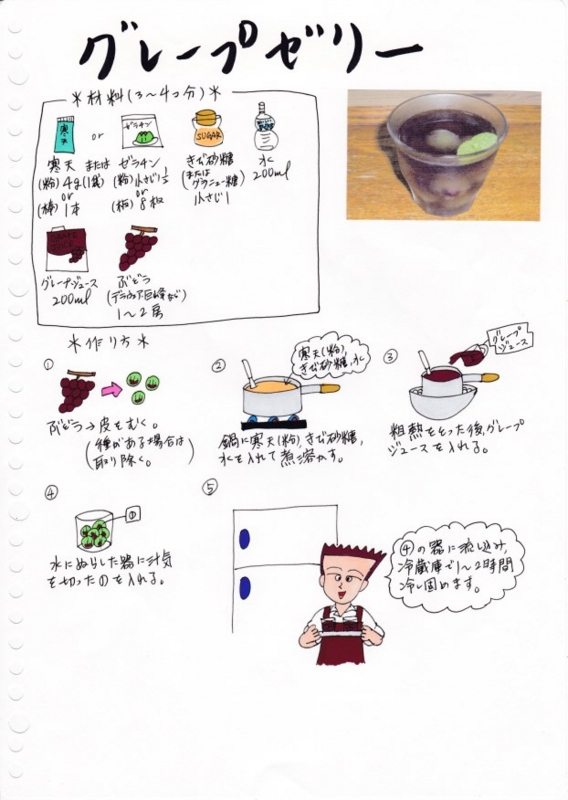 グレープゼリー
＊材料(3〜4コ分)＊
寒天
or
ゼラチン
SUGAR
寒天 または
(粉)4g(1袋)
or
(棒)1本
ゼラチン
(粉)小さじ1/2
or
(板)8板
きび砂糖
(または
グラニュー糖)
小さじ1
水
200ml
グレープジュース
200ml
ぶどう
(デラウェア、巨峰など)
1〜2房
＊作り方＊
①
ぶどう→皮をむく。
(種がある場合は
取り除く。)
②
寒天(粉),
きび砂糖,水
鍋に寒天(粉),きび砂糖,
水を入れて煮溶かす。
③
グレープ
ジュース
粗熱をとった後,グレープ
ジュースを入れる。
④
①
水にぬらした器に汁気
を切ったのを入れる。
⑤
④の器に流し込み,
冷蔵庫で1〜2時間
冷し固めます。